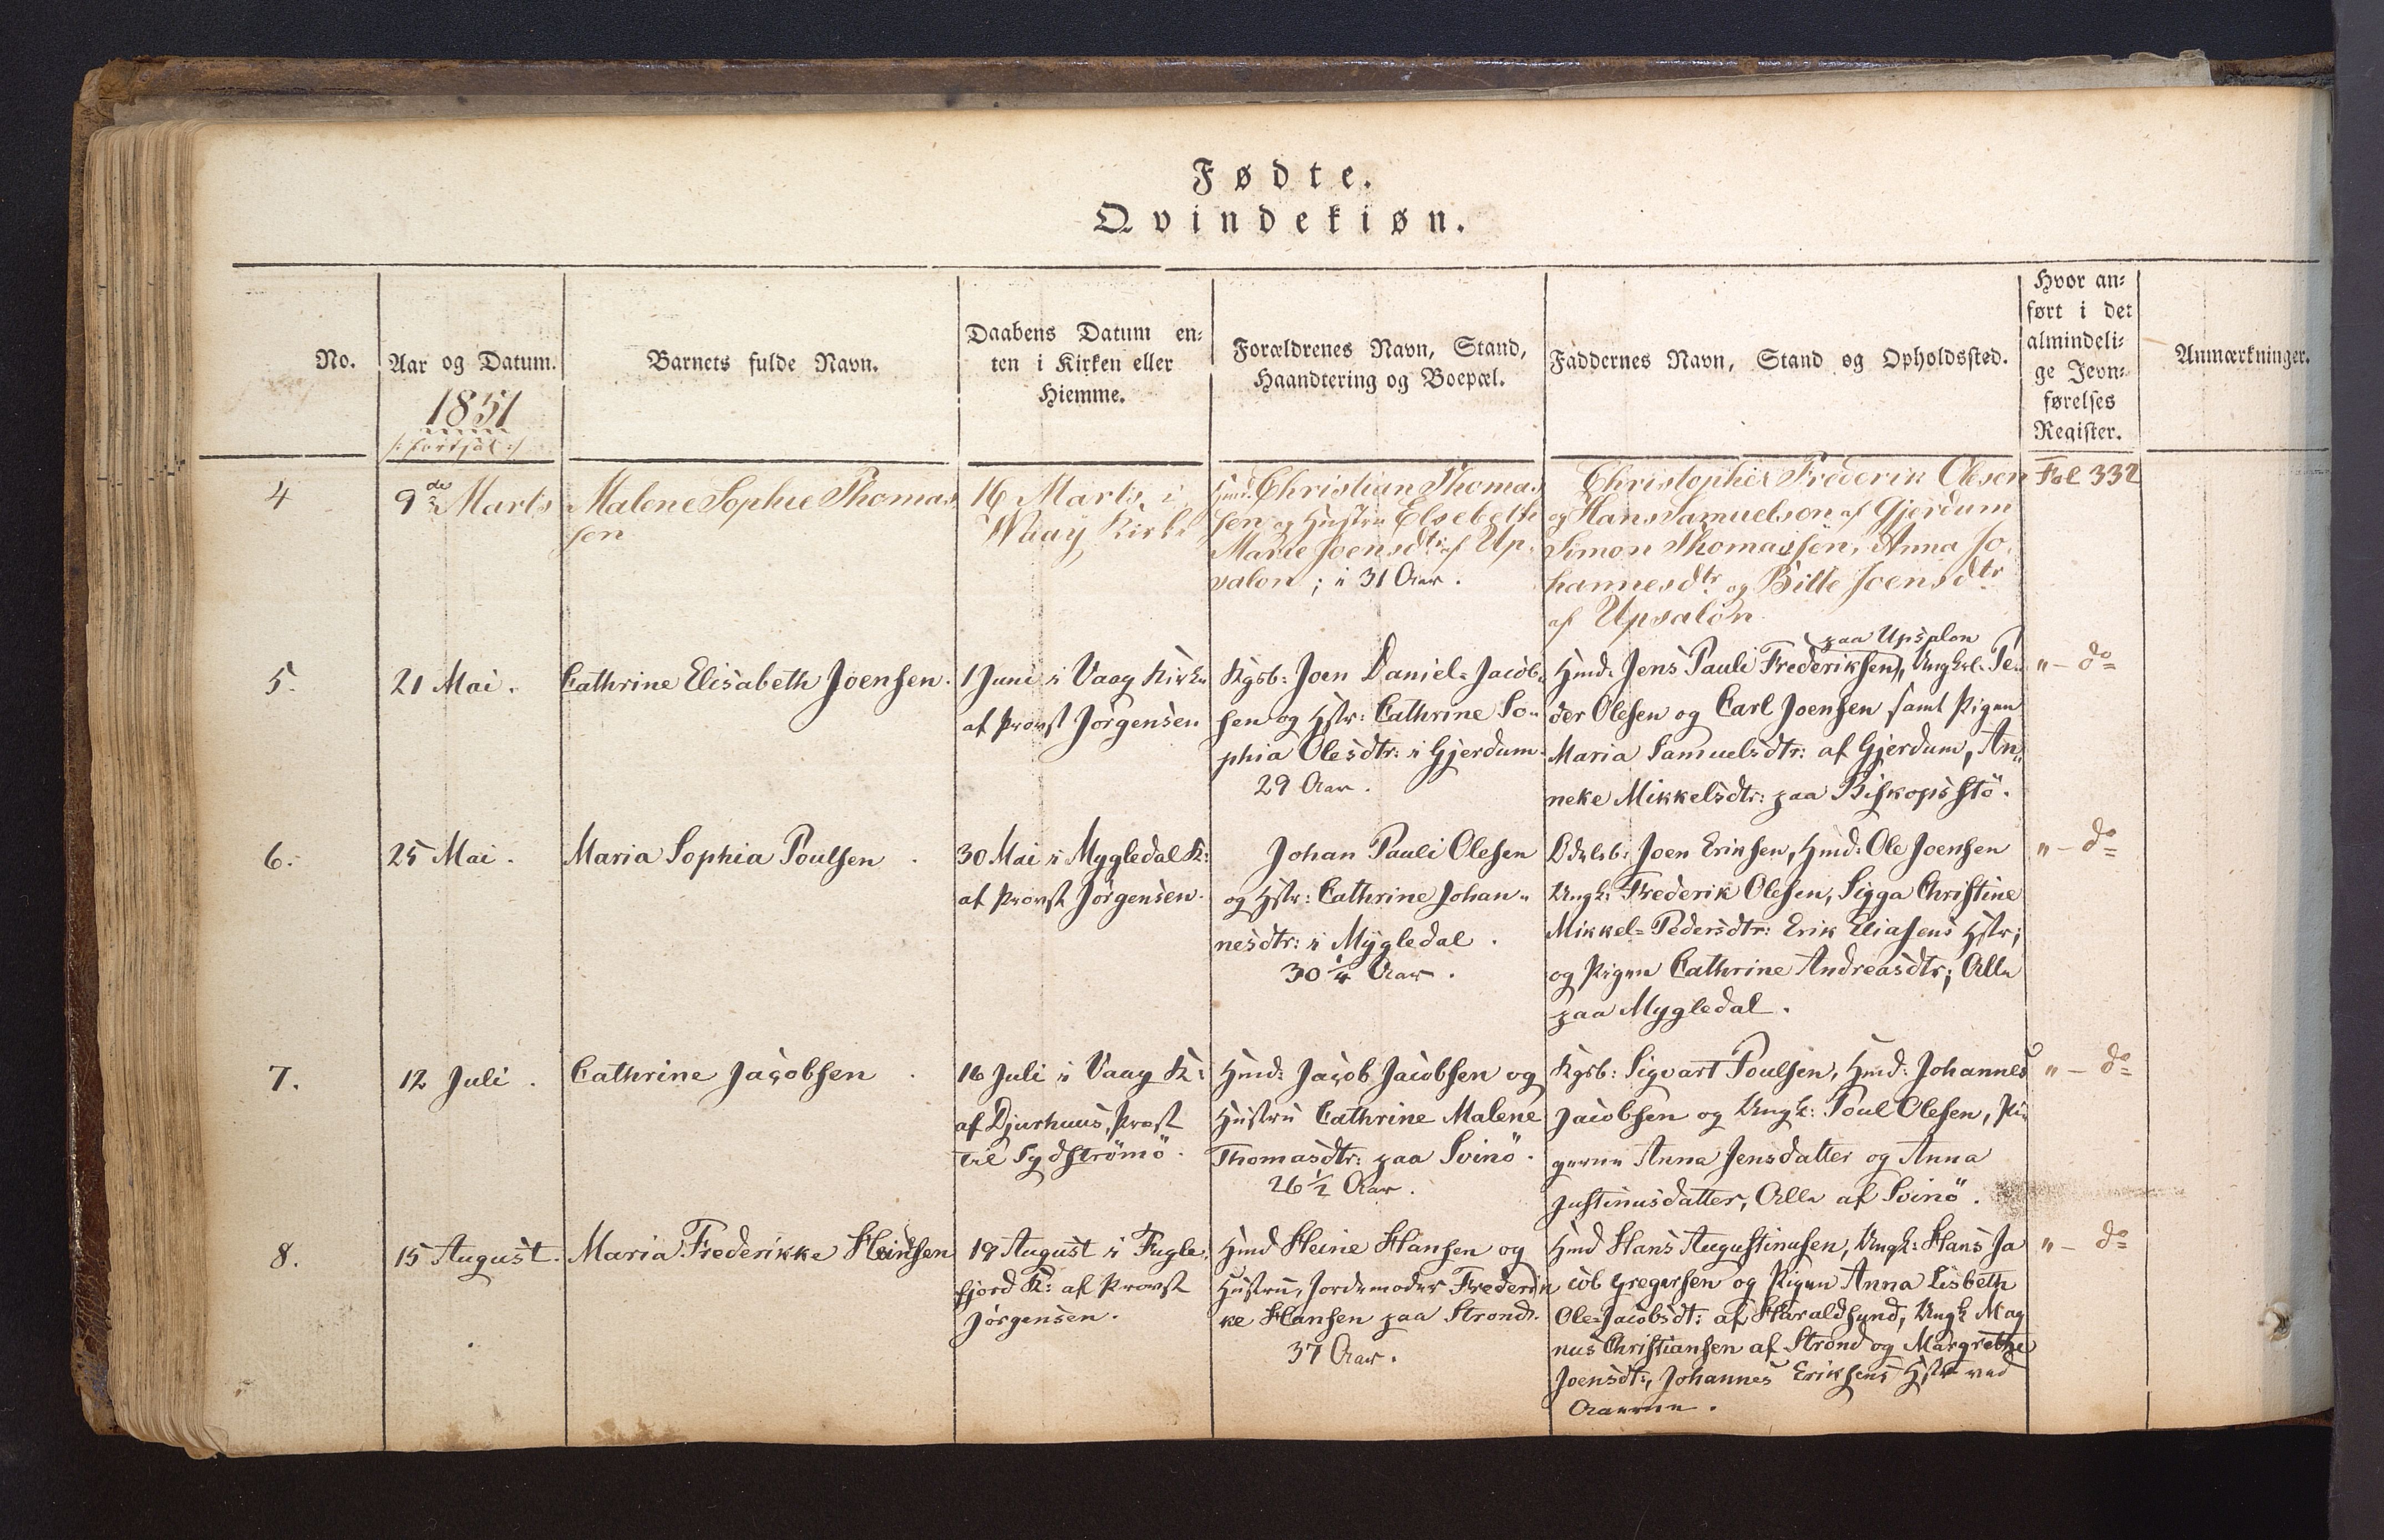 Fødte.
Qvindekiøn.
No.
Aar og Datum.
1851
/: fortsat :/
Barnets fulde Navn.
Daabens Datum en-
ten i Kirken eller
Hiemme.
Forældrenes Navn, Stand,
Haandtering og Boepæl.
Faddernes Navn, Stand og Opholdssted.
Hvor an-
ført i det
almindeli-
ge Jevn-
førelses
Register.
Anmærkninger.
4
9de Marts
Malene Sophie Thomas
sen
16 Marts i
Waag Kirke
Hmd. Christian Thomas
sen og Hustru Elsebeth
Marie Joensdtr. af Up-
salon ; i 31 Aar.
Christopher Frederik Olesen
og Hans Samuelson af Gjerdum
Simon Thomassen, Anna Jo-
hannesdtr. og Bille Joensdtr.
af Upsalon
Fol 332
5.
21 Mai.
Cathrine Elisabeth Joensen.
1 Juni i Vaag Kirke
af Provst Jörgensen
Kgsb: Joen Daniel Jacob-
sen og Hstr: Cathrine So-
phia Olesdtr: i Gjerdum.
29 Aar.
paa Upsalon
Hmd: Jens Pauli Frederiksen, Ungkrl. Pe-
der Olesen og Carl Joensen samt Pigen
Maria Samuelsdtr: af Gjerdum, An-
neke Mikkelsdtr: paa Biskopsstö.
" - do
6.
25 Mai.
Maria Sophia Poulsen.
30 Mai i Mygledal K:
af Provst Jörgensen.
Johan Pauli Olesen
og Hstr: Cathrine Johan-
nesdtr: i Mygledal.
30 1/4 Aar.
Odelsb: Joen Eriksen, Hmd: Ole Joensen
Ungk: Frederik Olesen, Sigga Christine
Mikkel-Pedersdtr: Erik Eliasens Hstr;
og Pigen Cathrine Andreasdtr; Alle
paa Mygledal.
" - do
7.
12 Juli.
Cathrine Jacobsen.
16 Juli i Vaag K:
af Djurhuus, Præst
til Sydströmö.
Hmd: Jacob Jacobsen og
Hustru Cathrine Malene
Thomasdtr: paa Svinö.
26 1/2 Aar.
Kgsb: Sigvart Poulsen, Hmd: Johannes
Jacobsen og Ungk: Poul Olesen, Pi-
gerne Anna Jensdatter og Anna
Justinusdatter, Alle af Svinö.
" - do
8.
15 August.
Maria Frederikke Heinsen
19 August i Fugle-
fjord K: af Provst
Jörgensen.
Hmd Heine Hansen og
Hustru, Jordemoder Frederik
ke Hansen paa Strond.
37 Aar.
Hmd Hans Augustinusen, Ungk: Hans Ja
cob Gregersen og Pigen Anna Lisbeth
Ole-Jacobsdt: af Haraldsund, Ungk Mag
nus Christiansen af Strond og Margrethe
Joensdt:, Johannes Eriksens Hstr ved
Aaerne.
" - do